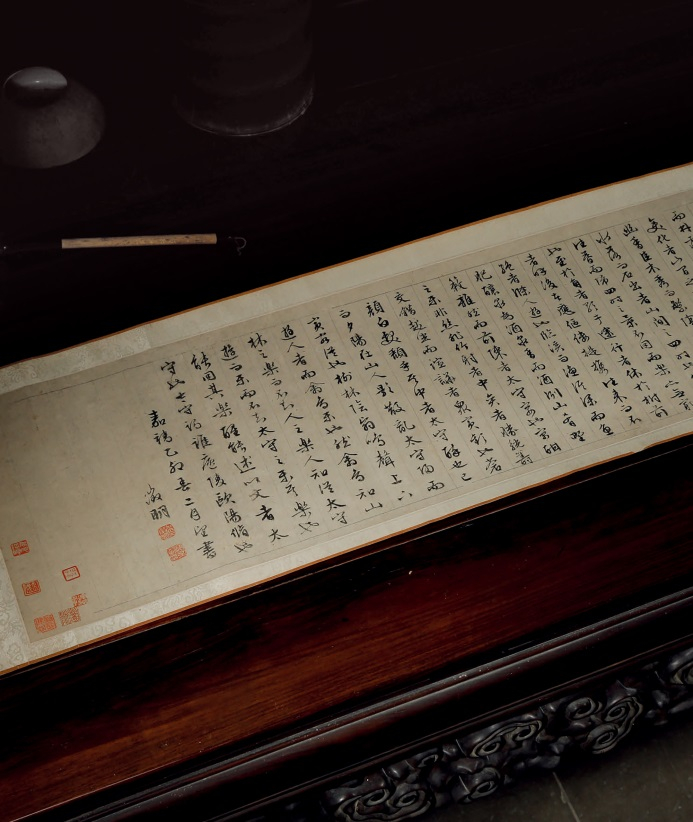 水落而石出者山間之四時也朝而
往暮而歸四時之景不同而樂亦無窮
也至於負者歌於塗行者休於樹前
者呼後者應傴僂提攜往來而不
絕者滁人遊也臨溪而漁溪深而魚
肥釀泉為酒泉香而酒冽山肴野
蔌雜然而前陳者太守宴也宴酣
之樂非絲非竹射者中奕者勝觥籌
交錯起坐而諠譁者眾賓懽也蒼
顏白髮頹乎其中者太守醉也已
而夕陽在山人影散亂太守歸而
賓客從也樹林陰翳鳴聲上下
遊人去而禽鳥樂也然而禽鳥知山
林之樂而不知人之樂人知從太守
遊而樂而不知太守之樂其樂也醉
能同其樂醒能述以文者太
守也太守謂誰廬陵歐陽脩也
嘉靖乙卯春二月望書
徵明